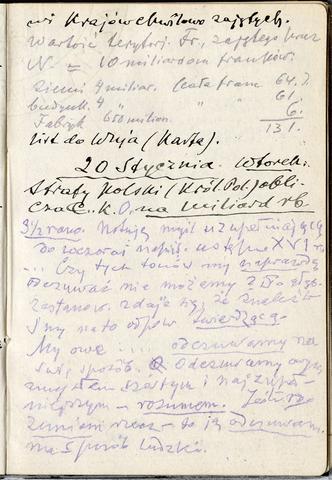 mi Krajów chwilowo zajętych.
Wartość terytorj. Fr. zajętego przez
N. = 10 miliardom franków.
Ziemi 4 miliar. (cała franc. 64.
budynk. 4 " " 61.
Fabryk 650 milion. 6.
131.
List do Wuja (Karta).
20 Stycznia. Wtorek.
Straty Polski (Król. Pol.) obli
cza C. K. O. na miliard rb
3½ rano. Notuję myśl uzupełniającą
do wczoraj napis. ustępu XVI r.
... Czy tych tonów my naprawdę
odczuwać nie możemy? Po głęb.
zastanow. zdaje się, że znaleźć
my na to odpow. twierdzącą
My owe ... odczuwamy na
swój sposób. Odczuwamy
zmysłem szóstym i najzupeł-
niejszym – rozumem.
rzecz – to ją odczuwam
na sposób ludzki.